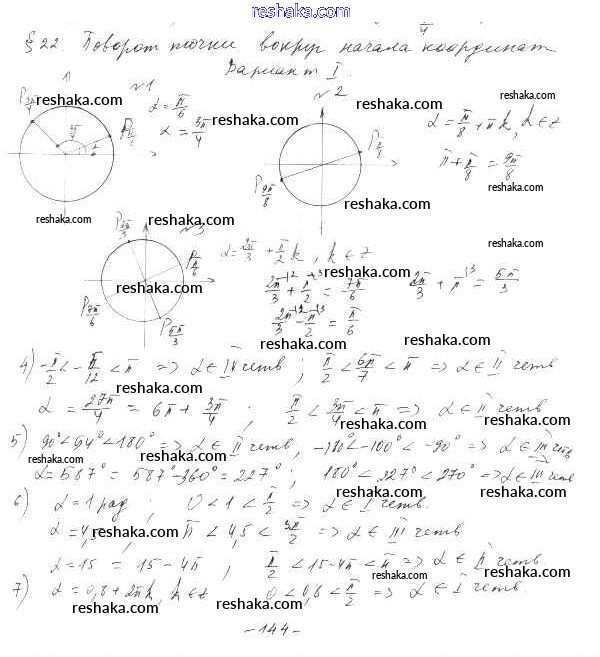 reshaka.com
§22. Поворот точки вокруг начала координат
Вариант I.
№1
P 3π/4
3π/4
π/6
P π/6
α = π/6
α = 3π/4
№2
P π/8
P 9π/8
α = π/8 + πk, k ∈ z
π + π/8 = 9π/8
№3
P 2π/3
P π/6
P 7π/6
P 5π/3
α = 2π/3 + π/2 k, k ∈ z
2π/3 + π/2 = 7π/6
2π/3 + π = 5π/3
2π/3 - π/2 = π/6
4) -π/2 < -π/12 < π => α ∈ IV четв ; π/2 < 6π/7 < π => α ∈ II четв
α = 27π/4 = 6π + 3π/4 ; π/2 < 3π/4 < π => α ∈ II четв
5) 90° < 94° < 180° => α ∈ II четв, -180° < -100° < -90° => α ∈ III четв
α = 587° = 587° - 360° = 227° ; 180° < 227° < 270° => α ∈ III четв
6) α = 1 рад ; 0 < 1 < π/2 => α ∈ I четв.
α = 4,5 ; π < 4,5 < 3π/2 => α ∈ III четв
α = 15 = 15 - 4π ; π/2 < 15 - 4π < π => α ∈ II четв
7) α = 0,8 + 2πk, k ∈ z 0 < 0,8 < π/2 => α ∈ I четв.
- 144 -